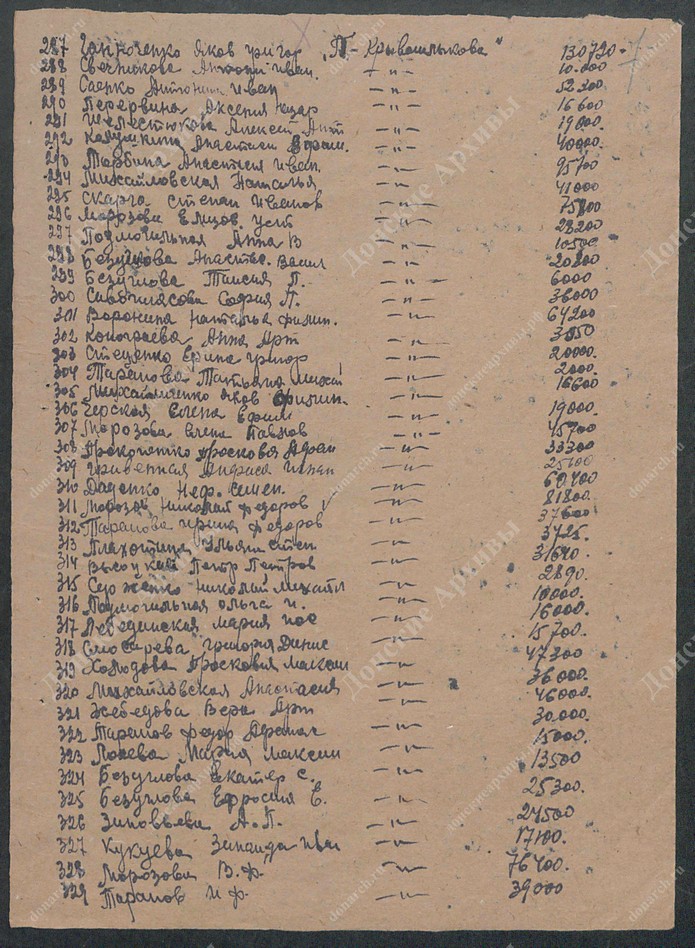 287 Ганноченко Яков Григор „П-Крывошлыкова" 130720-
288 Свечникова Антони Иван. —"— 10.000
289 Саенко Антонина Иван —"— 52200
290 Перервина Аксения —"— 16600
291 Шелестюкова Алексей Ант —"— 19000.
292 Калушкина Анастаси —"— 40000.
293 Анастасия Иван. —"— 95700
294 Михайловская Наталья —"— 41000
295 Скарга Степан Иванов —"— 75800
296 Морозова Елизов. Уст —"— 28200
297 Подмогильная Анна В —"— 10500.
298 Безуглова Анастас. Васил —"— 20800
299 Безуглова Таисия П. —"— 6000
300 София П. —"— 36000
301 Воронина Наталья Филип. —"— 64200
302 Анна Арт —"— 3850
303 Стеценко Ерина Григор —"— 20000.
304 Таранова Татьяна Михай —"— 2000.
305 Михайличенко Яков Филип. —"— 16600
306 Черская Елена Ефим —"— 19000.
307 Морозова Елена Павлов —"— 45700
308 Прокопенко Просковья —"— 33300
309 Анфиса —"— 25100
310 Даценко Неф. Семен. —"— 60400
311 Морозов Николай Федоров —"— 81800.
312 Таранова Ирина Федоров —"— 37600
313 Ульяна Степ —"— 3425.
314 Высоцкий Петр Петров —"— 31640.
315 Николай Михайл —"— 2890.
316 Подмогильная Ольга И. —"— 10000.
317 Лебединская Мария —"— 16000.
318 Григория Денис —"— 15700.
319 Холодова Просковья Максим —"— 47300
320 Михайловская Анастасия —"— 36000.
321 Жебедова Вера Арт —"— 46000.
322 Таранов Федор —"— 30.000.
323 Мария Максим —"— 15000.
324 Безуглова Екатер С. —"— 13500
325 Безуглова Ефросиния Е. —"— 25300.
326 Зиновьева А.П. —"— 24500
327 Кукуева Зинаида Иван —"— 17100.
328 Морозова В.Ф. —"— 76400.
329 Таранов И Ф. —"— 39000
Донские Архивы
donarch.ru
донскиеархивы.рф